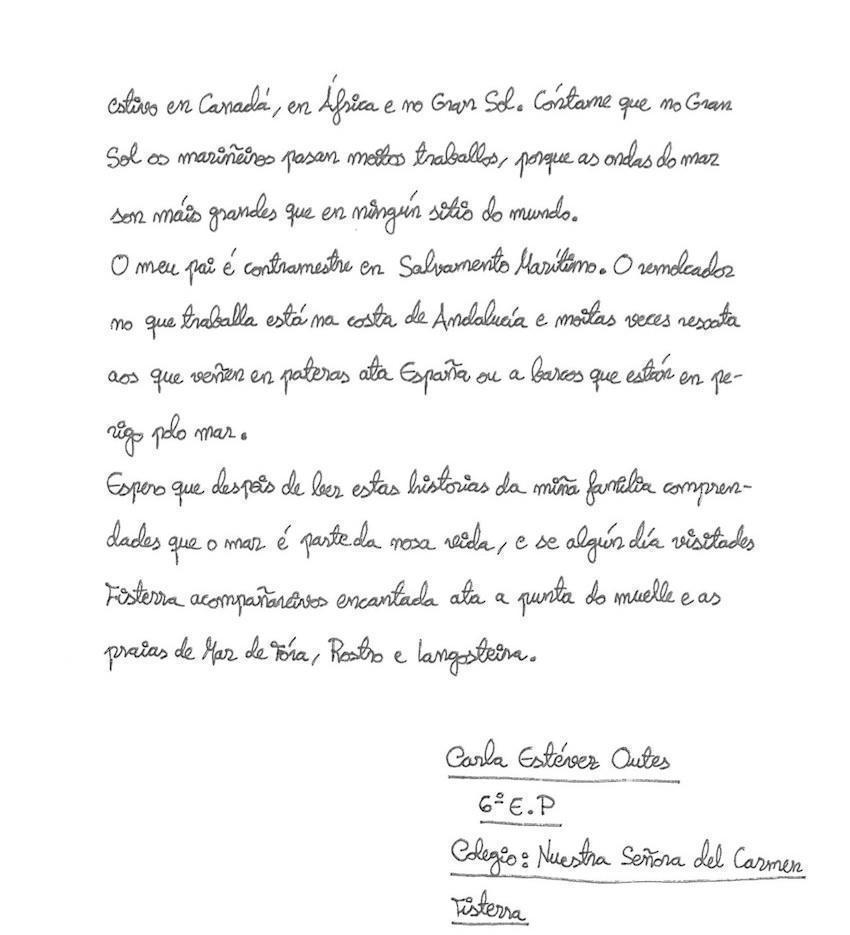 estivo en Canadá, en África e no Gran Sol. Cóntame que no Gran
Sol os mariñeiros pasan moitos traballos, porque as ondas do mar
son máis grandes que en ningún sitio do mundo.
O meu pai é contramestre en Salvamento Marítimo. O remolcador
no que traballa está na costa de Andalucía e moitas veces rescata
aos que veñen en pateras ata España ou a barcos que están en pe-
rigo polo mar.
Espero que despois de leer estas historias da miña familia compren-
dades que o mar é parte da nosa vida, e se algún día visitades
Fisterra acompañareivos encantada ata a punta do muelle e as
praias de Mar de Fóra, Rostro e Langosteira.
Carla Estévez Outes
6º E.P
Colegio: Nuestra Señora del Carmen
Fisterra